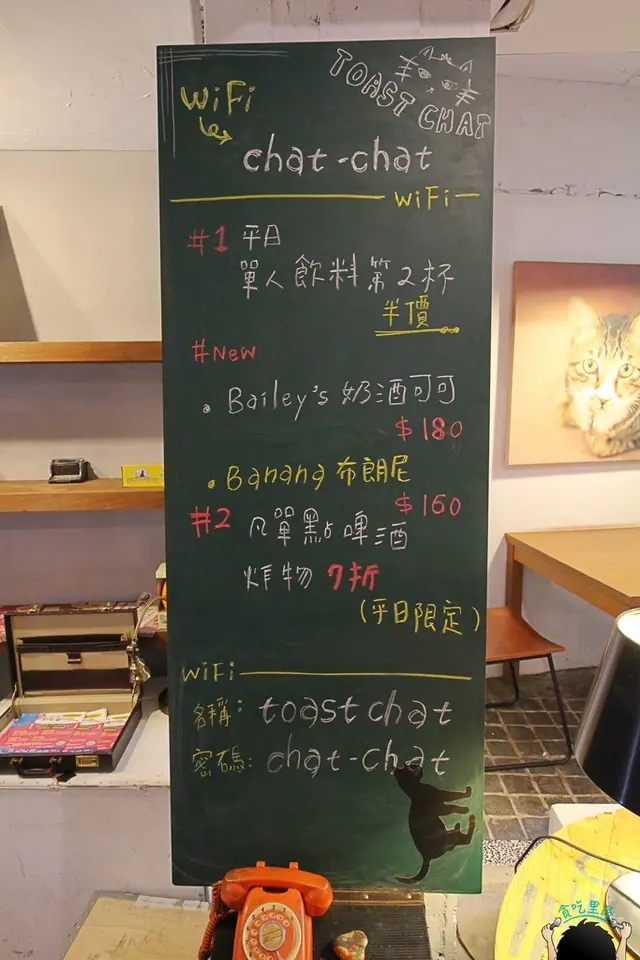 WiFi
TOAST CHAT
chat-chat
WiFi
#1 平日
單人飲料第2杯
半價
#New
Bailey's 奶酒可可
$180
Banana 布朗尼
$160
#2 凡單點啤酒
炸物 7折
(平日限定)
WiFi
名稱: toast chat
密碼: chat-chat
貪吃里